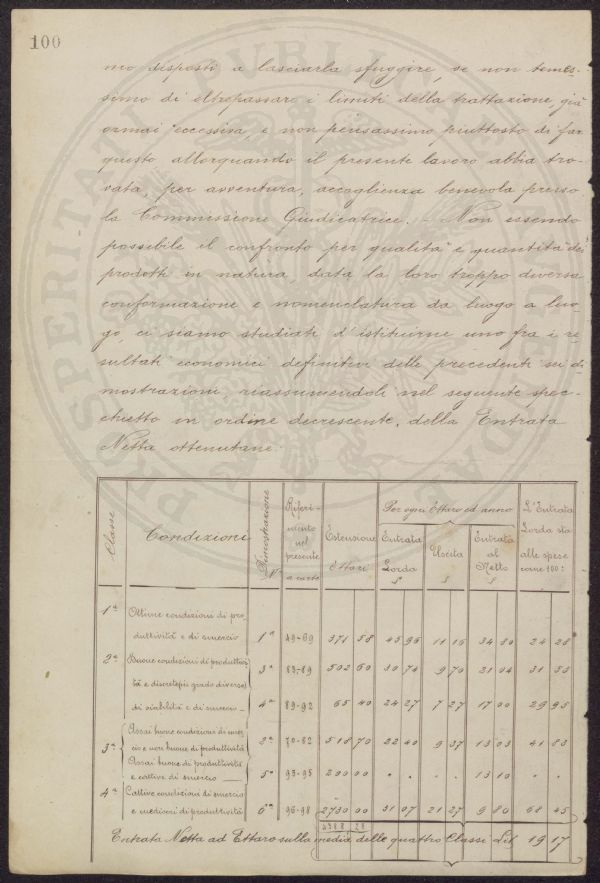 100
mo disposti a lasciarla sfuggire, se non temes-
simo di oltrepassare i limiti della trattazione, già
ormai eccessiva, e non pensassimo piuttosto di far
questo allorquando il presente lavoro abbia tro-
vata, per avventura, accoglienza benevola presso
la Commissione Giudicatrice. - Non essendo
possibile il confronto per qualità e quantità dei
prodotti in natura, data la loro troppo diversa
conformazione e nomenclatura da luogo a luo-
go, ci siamo studiati d'istituirne uno fra i re-
sultati economici definitivi delle precedenti sei di-
mostrazioni, riassumendoli nel seguente spec-
chietto in ordine decrescente, della Entrata
Netta ottenutane.
Classe Condizioni Dimostrazione N° Riferi-mento nel presente a carte Estensione Ettari Per ogni Ettaro ed anno Entrata Lorda £ Uscita £ Entrata al Netto £ L'Entrata Lorda sta alle spese come 100:
1ª Ottime condizioni di pro-
duttività e di smercio 1ª 49-69 371 58 45 96 11 16 34 80 24 28
2ª Buone condizioni di produttivi-
tà e discrete 3ª 83-89 302 60 30 74 9 70 21 04 31 55
di viabilità e di smercio 4ª 89-92 65 40 24 27 7 27 17 00 29 95
3ª Assai buone condizioni di smer-
cio e non buone di produttività 2ª 70-82 518 70 22 40 9 37 13 03 41 83
Assai buone di produttività
e cattive di smercio 5ª 93-95 200 00 " " " " 13 10 " "
4ª Cattive condizioni di smercio
e mediocri di produttività 6ª 96-98 2730 00 31 07 21 27 9 80 68 45
4388 28
Entrata Netta ad Ettaro sulla media delle quattro Classi Lit 19 17
PROSPERITATI PVBLICAE AVGENDAE